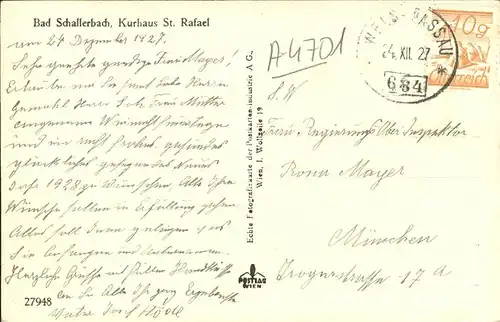 Bad Schallerbach, Kurhaus St. Rafael
am 24 Dezember 1927.
Sehr geehrte gnädige Frau Mayer!
Erlaube mir Sie samt Herrn
Gemahl Herrn Sohn Frau Mutter
angenehme Weihnachtsfeiertage
und ein recht frohes, gesundes
glückliches gesegnetes Neues
Jahr 1928 zu wünschen. Alle Ihre
Wünsche sollen in Erfüllung gehen
Alles soll Ihnen gelingen was
Sie anfangen und unternehmen.
Herzliche Grüsse mit Handküsse
an Sie Alle Ihr ganz Ergebenster
Josef
27948
Echte Fotografiekarte der Postkarten-Industrie A G.,
Wien, I. Wollzeile 19
POSTIAG
WIEN
A 4701
WELS PASSAU
24. XII. 27
*
684
10g
S. W
Frau Regierungs Ober Inspektor
Rosa Mayer
München
Trogerstrasse 17 A